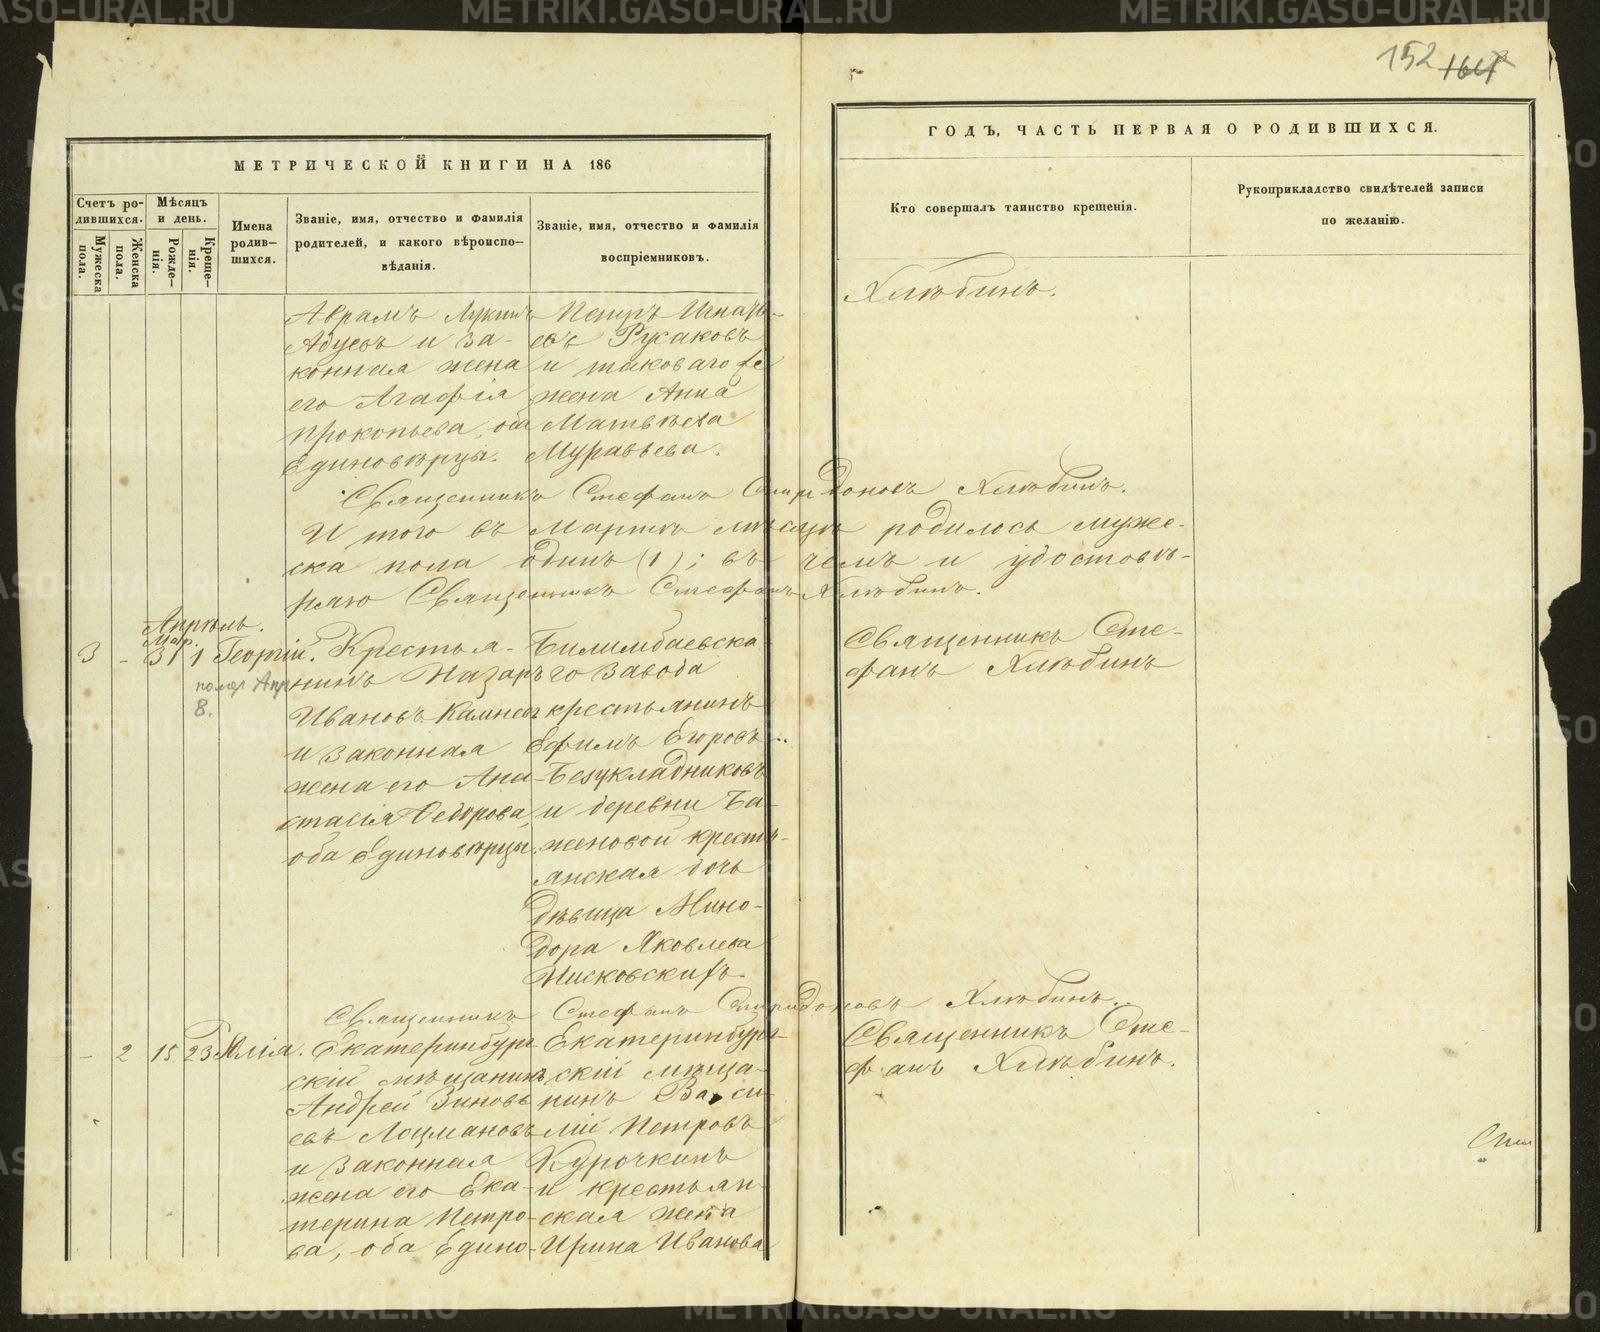 152 164
МЕТРИЧЕСКОЙ КНИГИ НА 186
ГОДЪ, ЧАСТЬ ПЕРВАЯ О РОДИВШИХСЯ.
Счетъ ро-
дившихся.
Мужеска
пола.
Женска
пола.
Мѣсяцъ
и день.
Рожде-
нія.
Креще-
нія.
Имена
родив-
шихся.
Званіе, имя, отчество и фамилія
родителей, и какого вѣроиспо-
вѣданія.
Званіе, имя, отчество и фамилія
воспріемниковъ.
Кто совершалъ таинство крещенія.
Рукоприкладство свидѣтелей записи
по желанію.
Аврамъ Лукинъ
Абуевъ и за-
конная жена
его Агафія
Прокопьева, оба
Единовѣрцы.
Петръ Игнать-
евъ Русаковъ
и таковаго же
жена Анна
Матвѣева
Муравьева.
Хлѣбинъ.
Священникъ Стефанъ Спиридоновъ Хлѣбинъ.
И того въ Мартѣ мѣсяцѣ родилось муже-
ска пола одинъ (1); въ чемъ и удостовѣ-
ряю Священникъ Стефанъ Хлѣбинъ.
Апрѣль.
Мар.
3 - 31 1 Георгій.
помер Апр
8.
Крестья-
нинъ Назаръ
Ивановъ Камнев
и законная
жена его Ана-
стасія Ѳедорова,
оба Единовѣрцы.
Билимбаевска
го завода
крестьянинъ
Ефимъ Егоровъ
Безукладниковъ
и деревни Ба-
женовой кресть-
янская дочь
дѣвица Мино-
дора Яковлева
Писковскихъ.
Священникъ Сте-
фанъ Хлѣбинъ
Священникъ Стефанъ Спиридоновъ Хлѣбинъ.
- 2 15 23 Юлія.
Екатеринбург
скій мѣщанинъ
Андрей Зиновь
евъ Лоцмановъ
и законная
жена его Ека-
терина Петро-
ва, оба Едино-
Екатеринбург-
скій мѣща-
нинъ Васи-
лій Петровъ
Курочкинъ
и крестьян
ская жена
Ирина Иванова
Священникъ Сте-
фанъ Хлѣбинъ.
METRIKI.GASO-URAL.RU